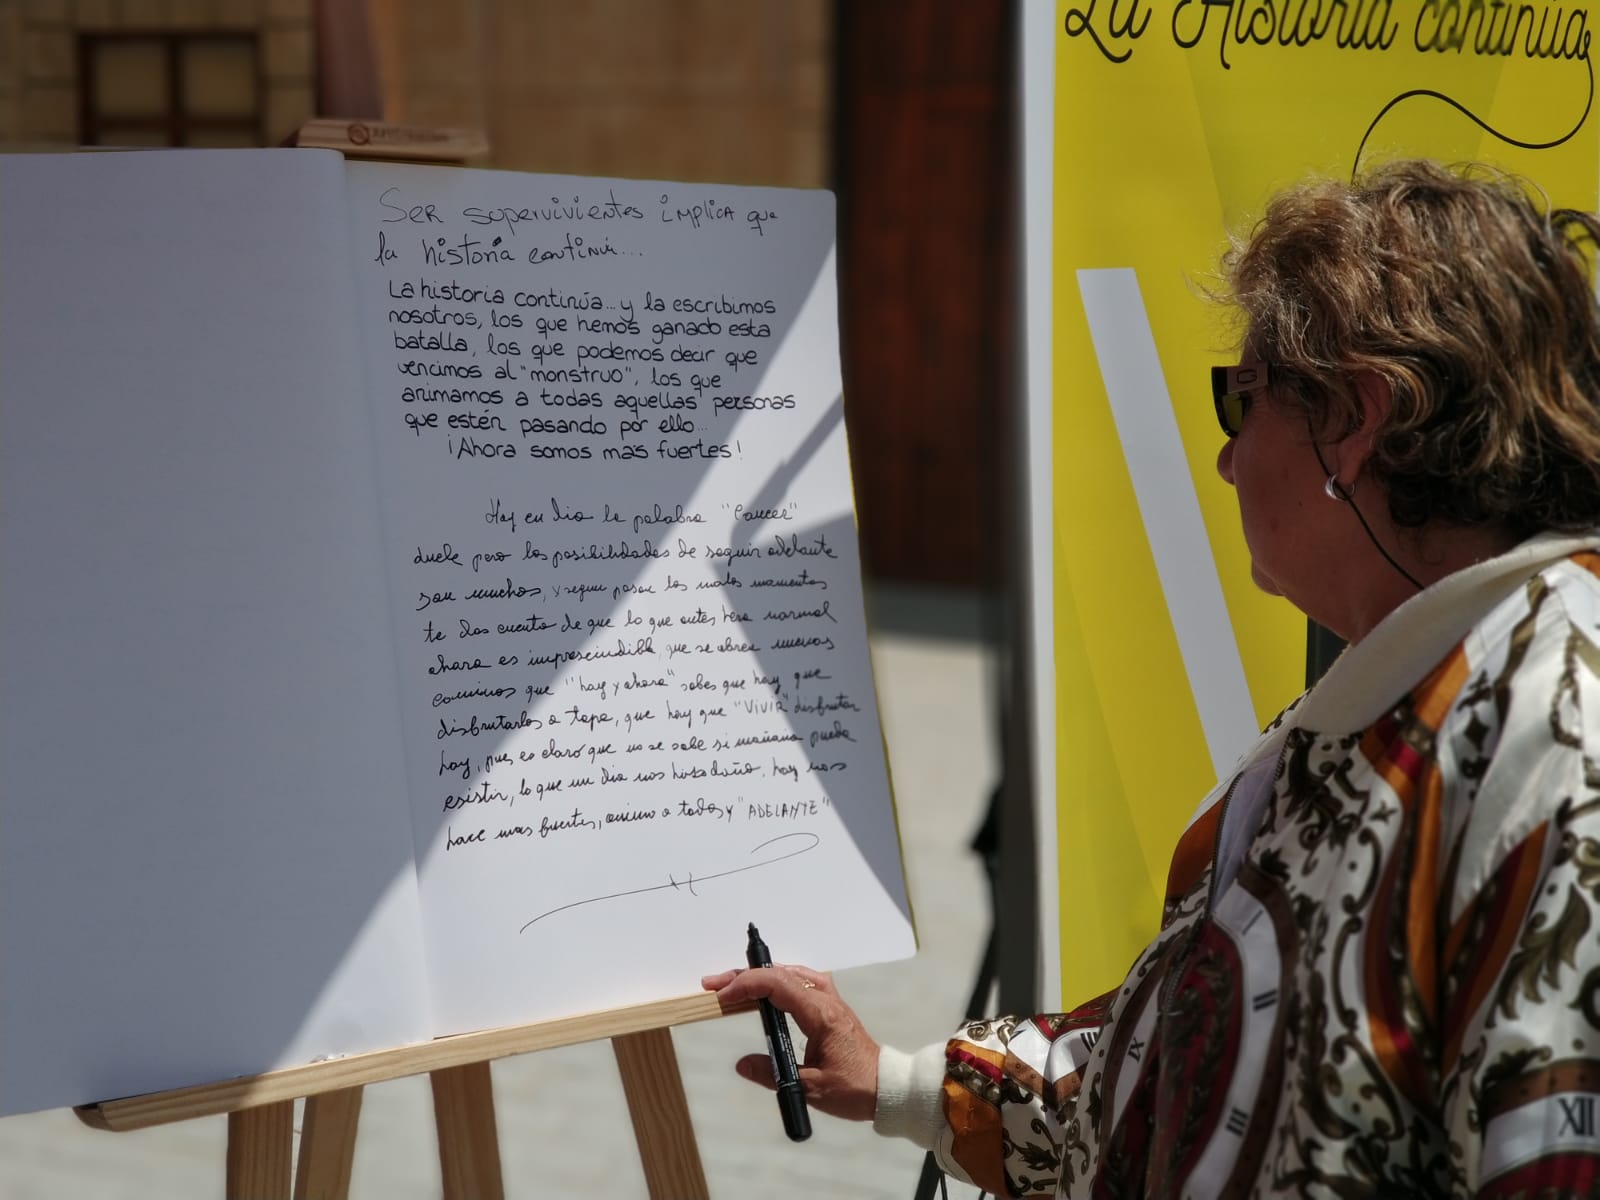 La Historia continúa
Ser supervivientes implica que
la historia continúi...
La historia continúa... y la escribimos
nosotros, los que hemos ganado esta
batalla, los que podemos decir que
vencimos al "monstruo", los que
animamos a todas aquellas personas
que estén pasando por ello...
¡Ahora somos más fuertes!
Hoy en dia la palabra "Cancer"
duele pero las posibilidades de seguir adelante
son muchas, y segun pasan los malos momentos
te das cuenta de que lo que antes hera normal
ahora es imprescindible, que se abren nuevos
caminos que "hoy y ahora" sabes que hay que
disfrutarlos a tope, que hay que "VIVIR" disfrutar
hoy, pues es claro que no se sabe si mañana pueda
esistir, lo que un dia nos hizo daño, hoy nos
hace mas fuertes, animo a todos y "ADELANTE"
IX
III
XII